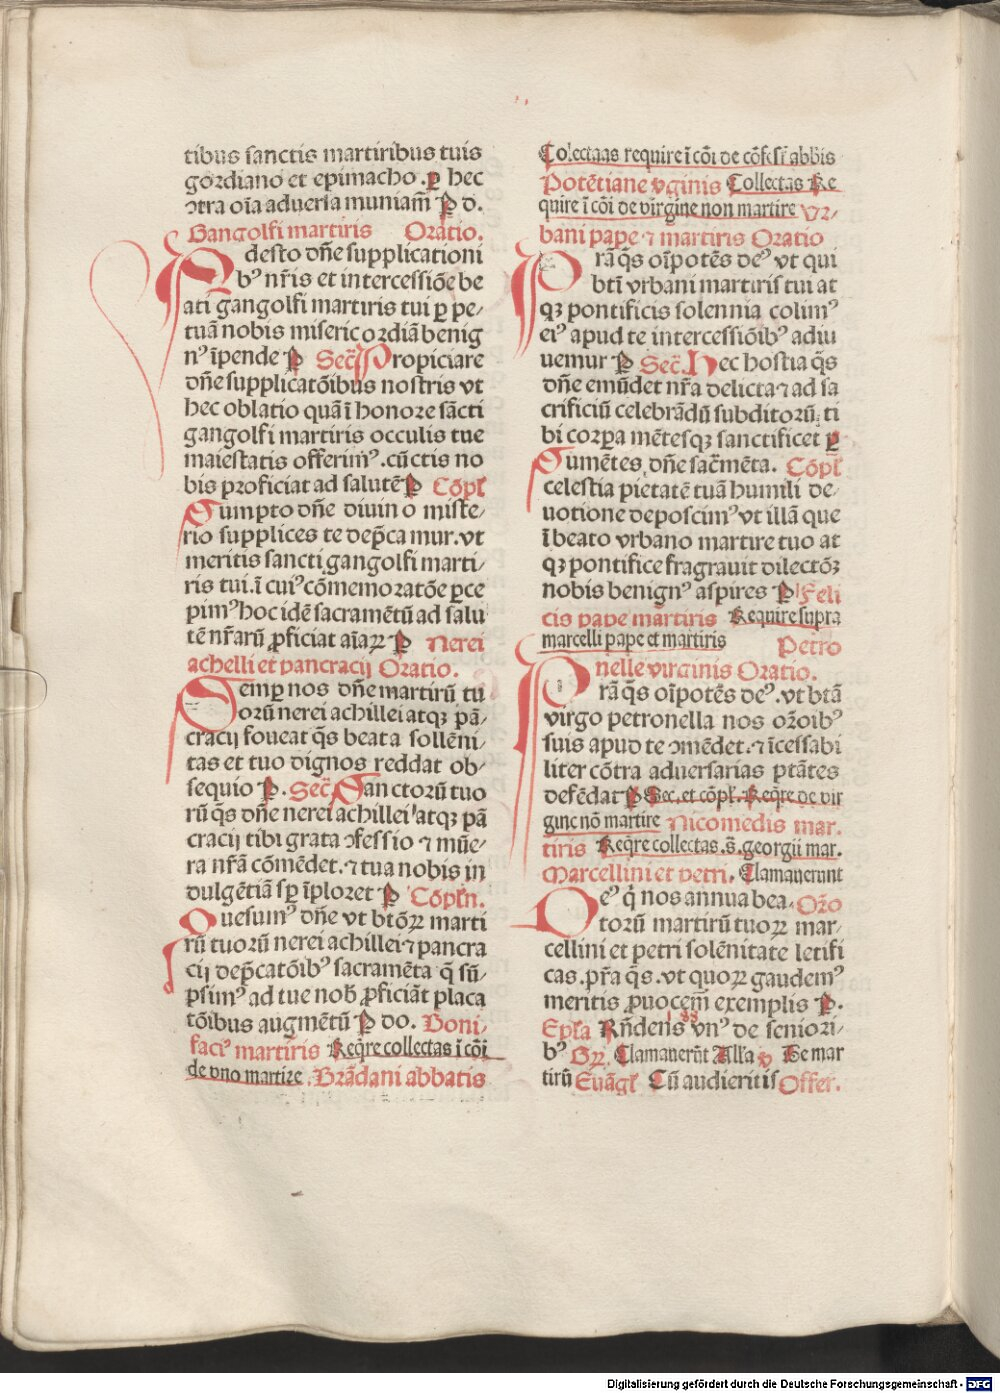 tibus sanctis martiribus tuis
gordiano et epimacho .ꝑ hec
ↄtra oīa aduersa muniam̄ P d.
Gangolfi martiris Oratio.
Adesto dn̄e supplicationi
bꝰ nr̄is et intercessiōe be
ati gangolfi martiris tui ꝑ pe⸗
tuā nobis misericordiā benig
nꝰ īpende P Sec̄ Propiciare
dn̄e supplicatōibus nostris vt
hec oblatio quā ī honore sācti
gangolfi martiris occulis tue
maiestatis offerimꝰ .cūctis no
bis proficiat ad salutē P Cōpl̄
Sumpto dn̄e diuino miste⸗
rio supplices te dep̄camur. vt
meritis sancti gangolfi marti⸗
ris tui. ī cuiꝰ cōmemoratōe ꝑce
pimꝰ hoc idē sacramētū ad salu
tē nr̄arū ꝓficiat aīaꝝ P Nerei
achelli et pancracij Oratio.
Semꝑ nos dn̄e martirū tu
orū nerei achillei atqꝫ pā⸗
cracij foueat q̄s beata sollēni⸗
tas et tuo dignos reddat ob⸗
sequio P. Sec̄ Sanctorū tuo
rū q̄s dn̄e nerei achillei atqꝫ pā
cracij tibi grata ↄfessio ⁊ mūe⸗
ra nr̄ā cōmēdet. ⁊ tua nobis in
dulgētiā sꝑ īploret P Cōpln̄.
Quesumꝰ dn̄e vt btōꝝ marti
rū tuorū nerei achillei ⁊ pancra
cij dep̄catōibꝰ sacramēta q̄ sū⸗
psimꝰ ad tue nob̄ ꝓficiāt placa
tōibus augmētū P do. Boni⸗
faciꝰ martiris Reqr̄e collectas ī cōi
de vno martire. Brādani abbatis
Colectaas require ī cōi de cōfes̄ abbis
Potētiane vginis Collectas Re
quire ī cōi de virgine non martire Vr⸗
bani pape ⁊ martiris Oratio
Prā q̄s oīpotēs deꝰ vt qui
btī vrbani martiris tui at
qꝫ pontificis solennia colimꝰ
eiꝰ apud te intercessiōibꝰ adiu
uemur P Sec̄. Hec hostia q̄s
dn̄e emūdet nr̄a delicta ⁊ ad sa
crificiū celebrādū subditorū ti
bi corꝑa mētesqꝫ sanctificet ꝑ
Sumētes dn̄e sac̄mēta. Cōpl̄
celestia pietatē tuā humili de⸗
uotione deposcimꝰ vt illā que
ī beato vrbano martire tuo at
qꝫ pontifice fragrauit dilectōꝫ
nobis benignꝰ aspires P Feli
cis pape martiris Require supra
marcelli pape et martiris Petro
nelle virginis Oratio.
Prā q̄s oīpotēs deꝰ .vt btā
virgo petronella nos or̄oibꝰ
suis apud te ↄmēdet. ⁊ īcessabi
liter cōtra aduersarias ptātes
defēdat P Sec. et cōpl̄. Reqr̄e de vir
gine nō martire Nicomedis mar.
tiris Reqr̄e collectas .s̄. georgii mar.
Marcellini et petri. Clamauerunt
Deꝰ q̄ nos annua bea⸗ Or̄o
torū martirū tuoꝝ mar⸗
cellini et petri solēnitate letifi
cas. pr̄a q̄s. vt quoꝝ gaudemꝰ
meritis ꝓuocem̄ exemplis P.
Epl̄a Rn̄dens vnꝰ de seniori⸗
bꝰ Gꝝ. Clamauerūt Alla v̄ Te mar
tirū Euāgl̄ Cū audieritis Offer.
Digitalisierung gefördert durch die Deutsche Forschungsgemeinschaft - DFG